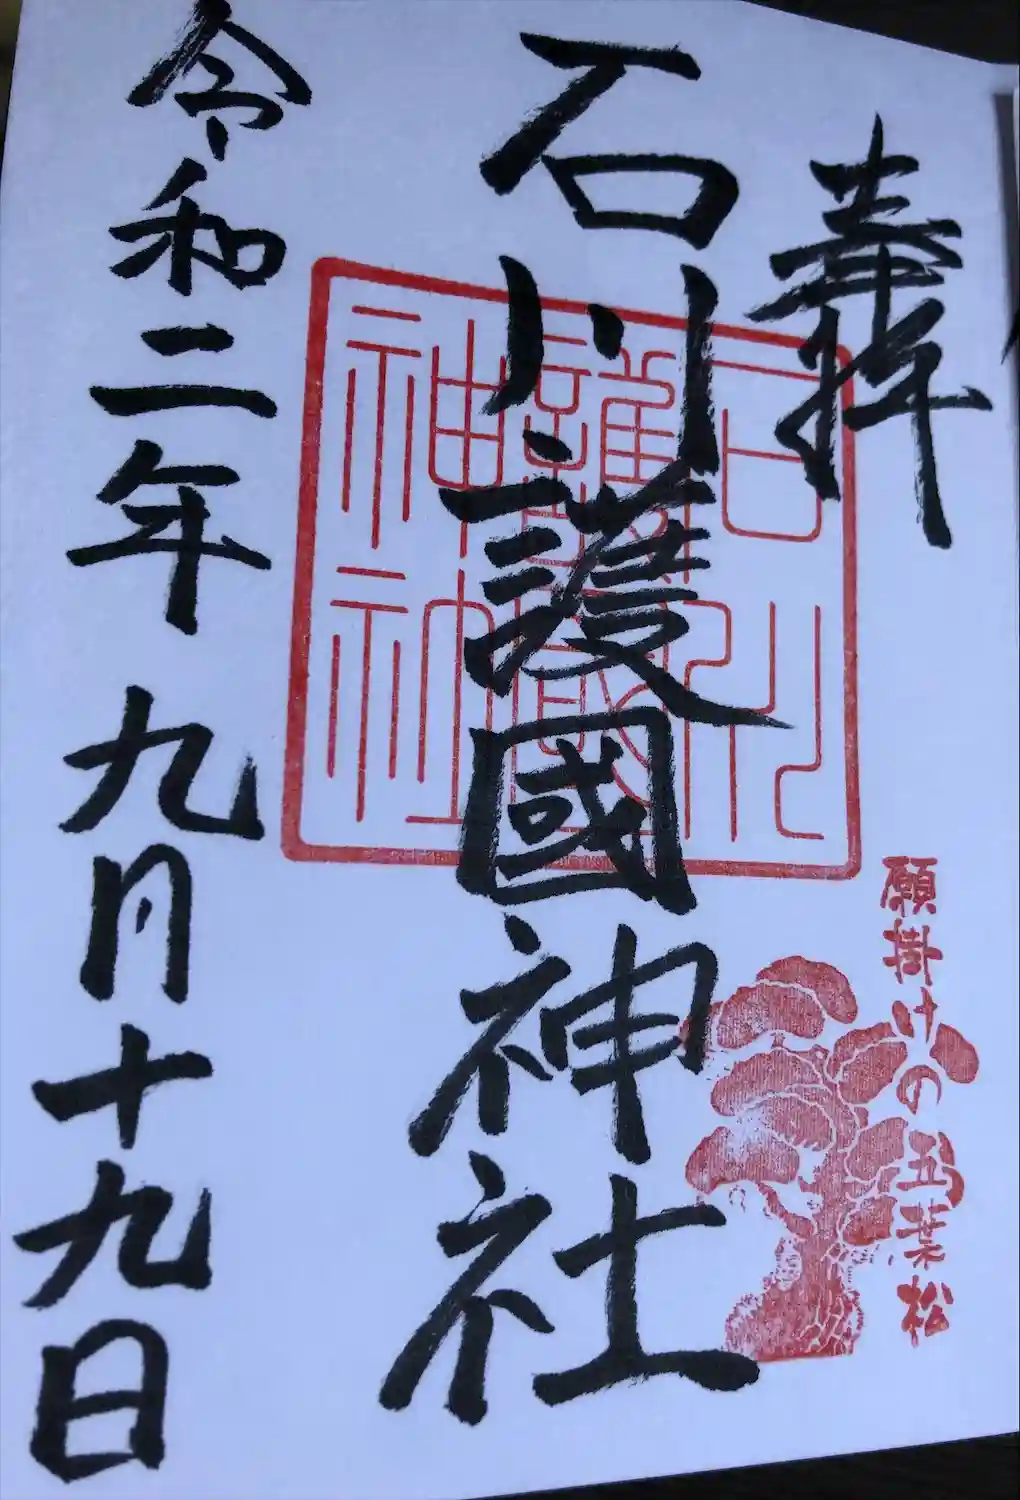 奉拝
石川護國神社
令和二年 九月十九日
石川
護國
神社
願掛けの五葉松